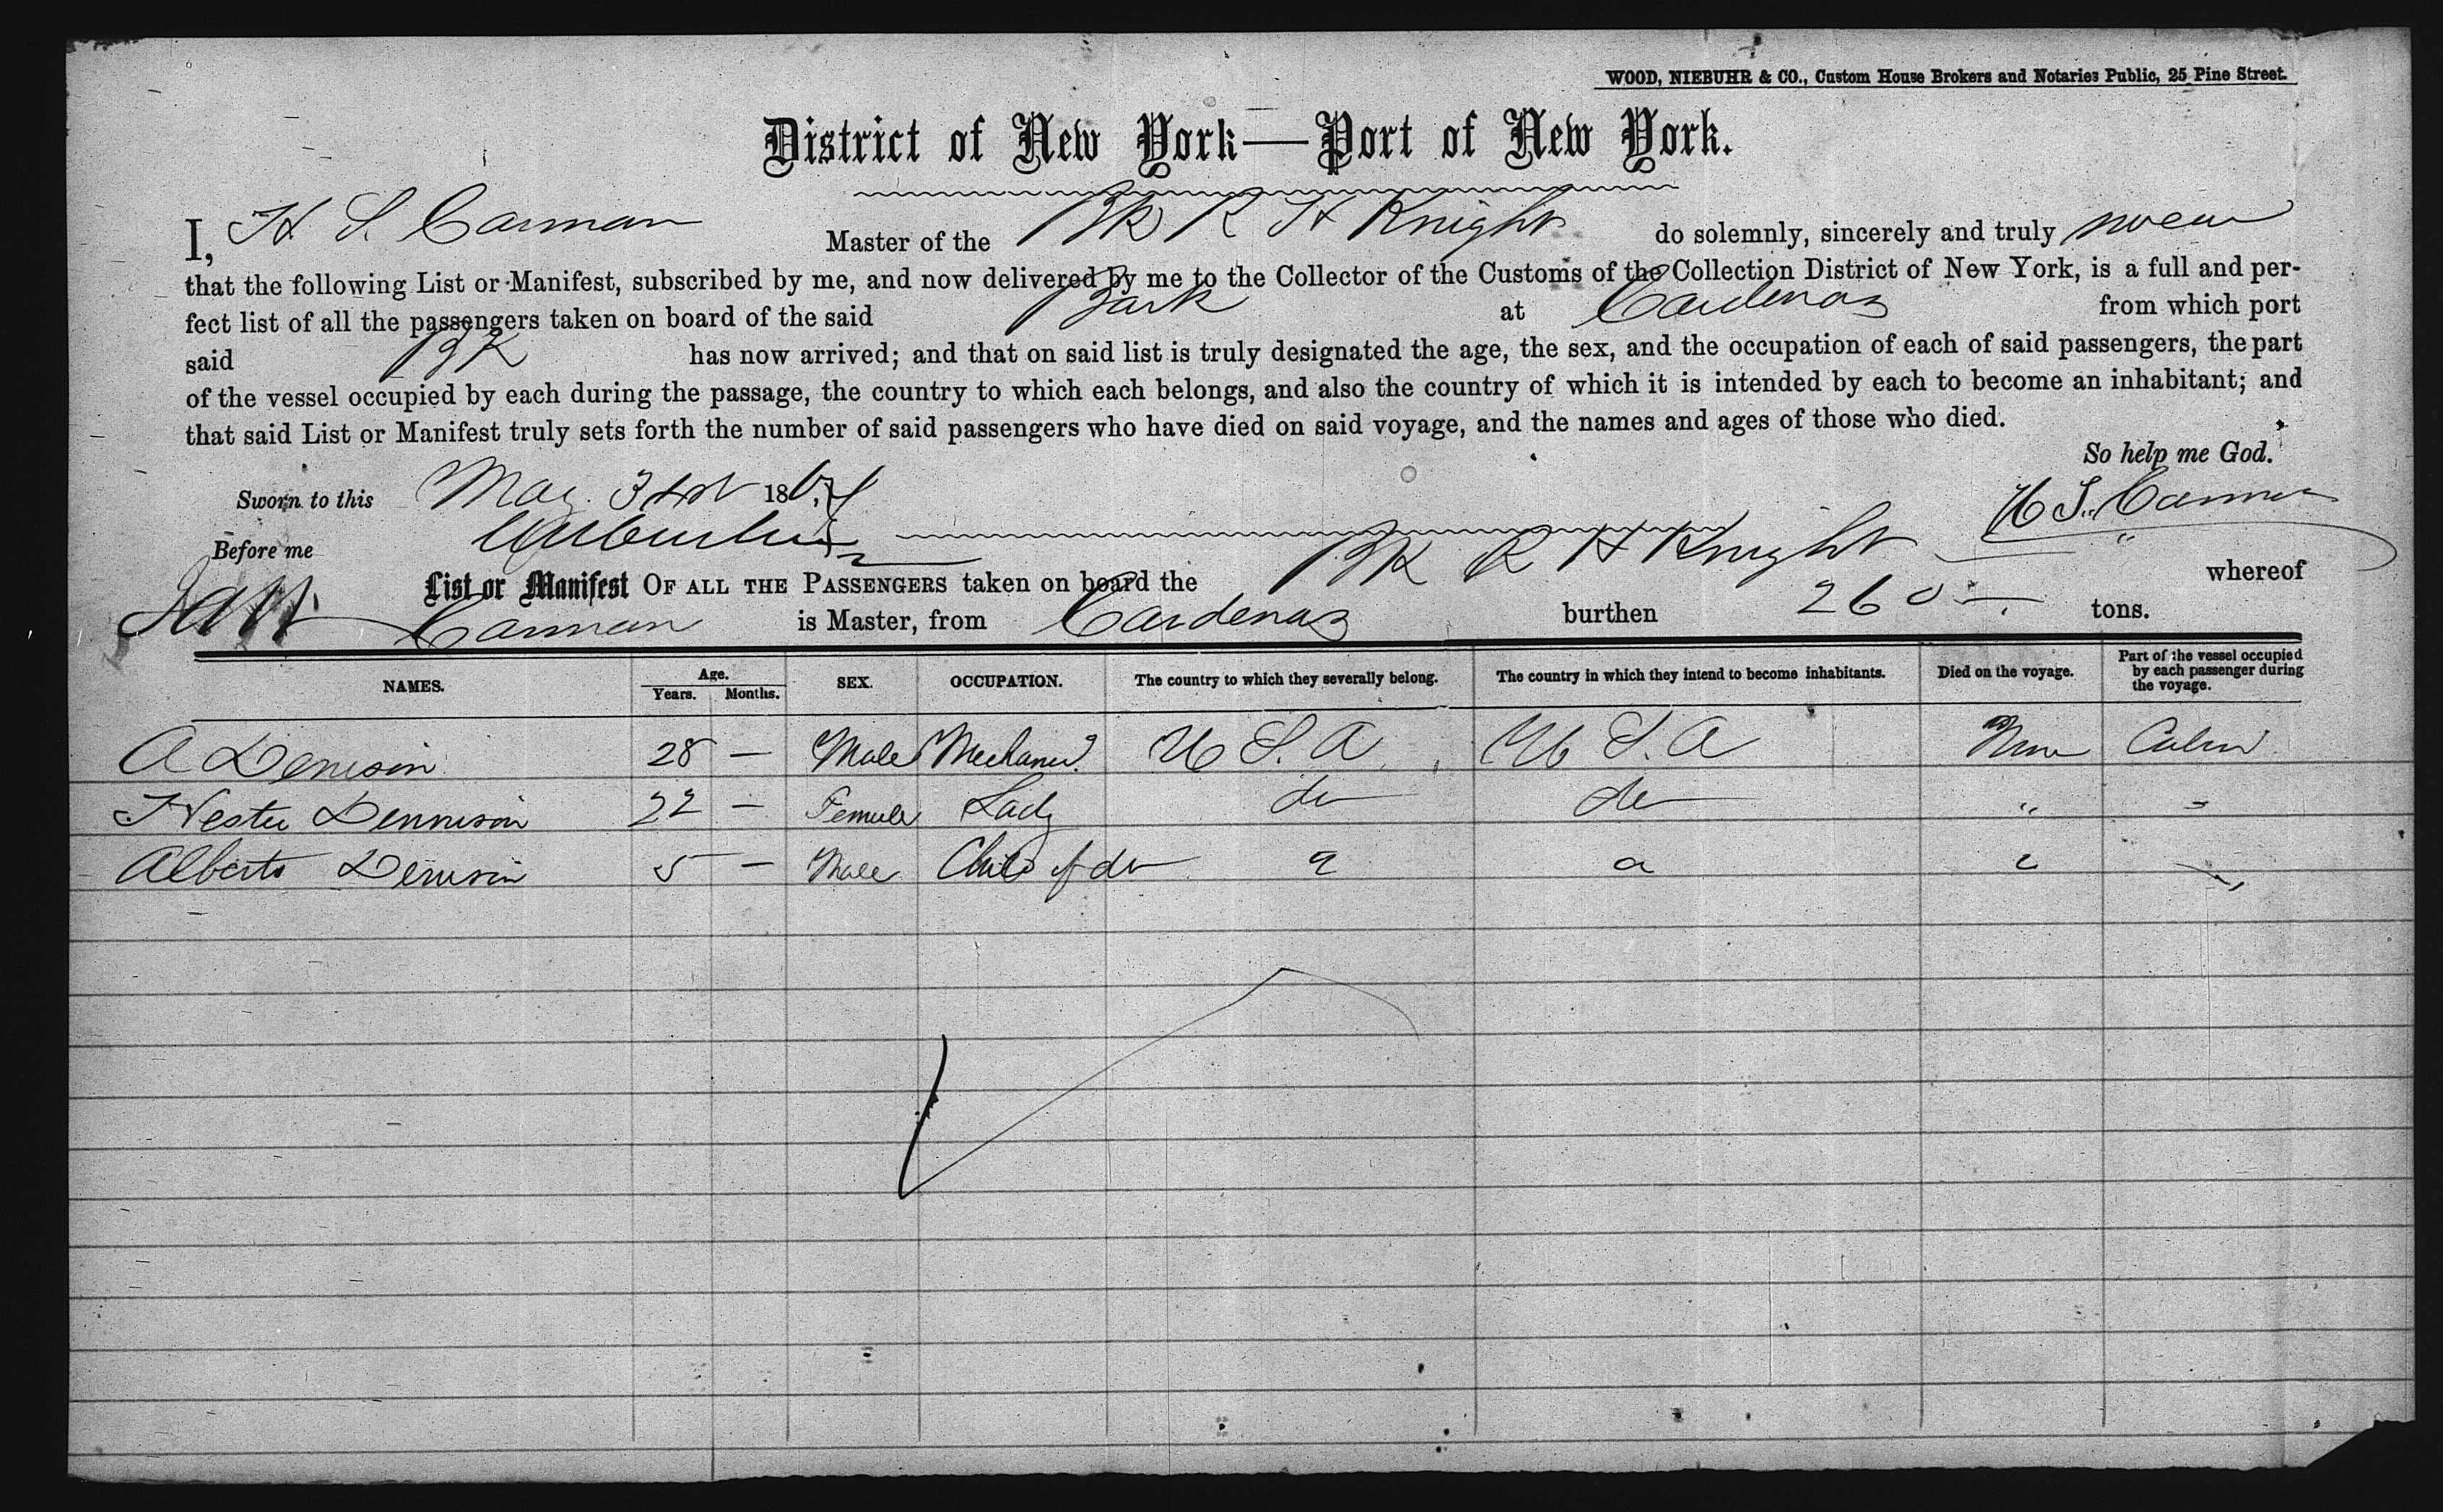 WOOD, NIEBUHR & CO., Custom House Brokers and Notaries Public, 25 Pine Street.
District of New York—Port of New York.
I, H S. Carman Master of the Bk R H Knight do solemnly, sincerely and truly swear
that the following List or Manifest, subscribed by me, and now delivered by me to the Collector of the Customs of the Collection District of New York, is a full and per-
fect list of all the passengers taken on board of the said Bark at Cardenas from which port
said BK has now arrived; and that on said list is truly designated the age, the sex, and the occupation of each of said passengers, the part
of the vessel occupied by each during the passage, the country to which each belongs, and also the country of which it is intended by each to become an inhabitant; and
that said List or Manifest truly sets forth the number of said passengers who have died on said voyage, and the names and ages of those who died.
So help me God.
Sworn to this May 31st 18 H S. Carman
Before me
List or Manifest OF ALL THE PASSENGERS taken on board the BK R H Knight whereof
Carman is Master, from Cardenas burthen 260 tons.
NAMES. Age. Years. Months. SEX. OCCUPATION. The country to which they severally belong. The country in which they intend to become inhabitants. Died on the voyage. Part of the vessel occupied by each passenger during the voyage.
A Denison 28 — Male Mechanic U S. A U S. A None Cabin
Hester Dennison 22 — Female Lady do do " "
Alberto Denison 5 — Male Child of do " " " "